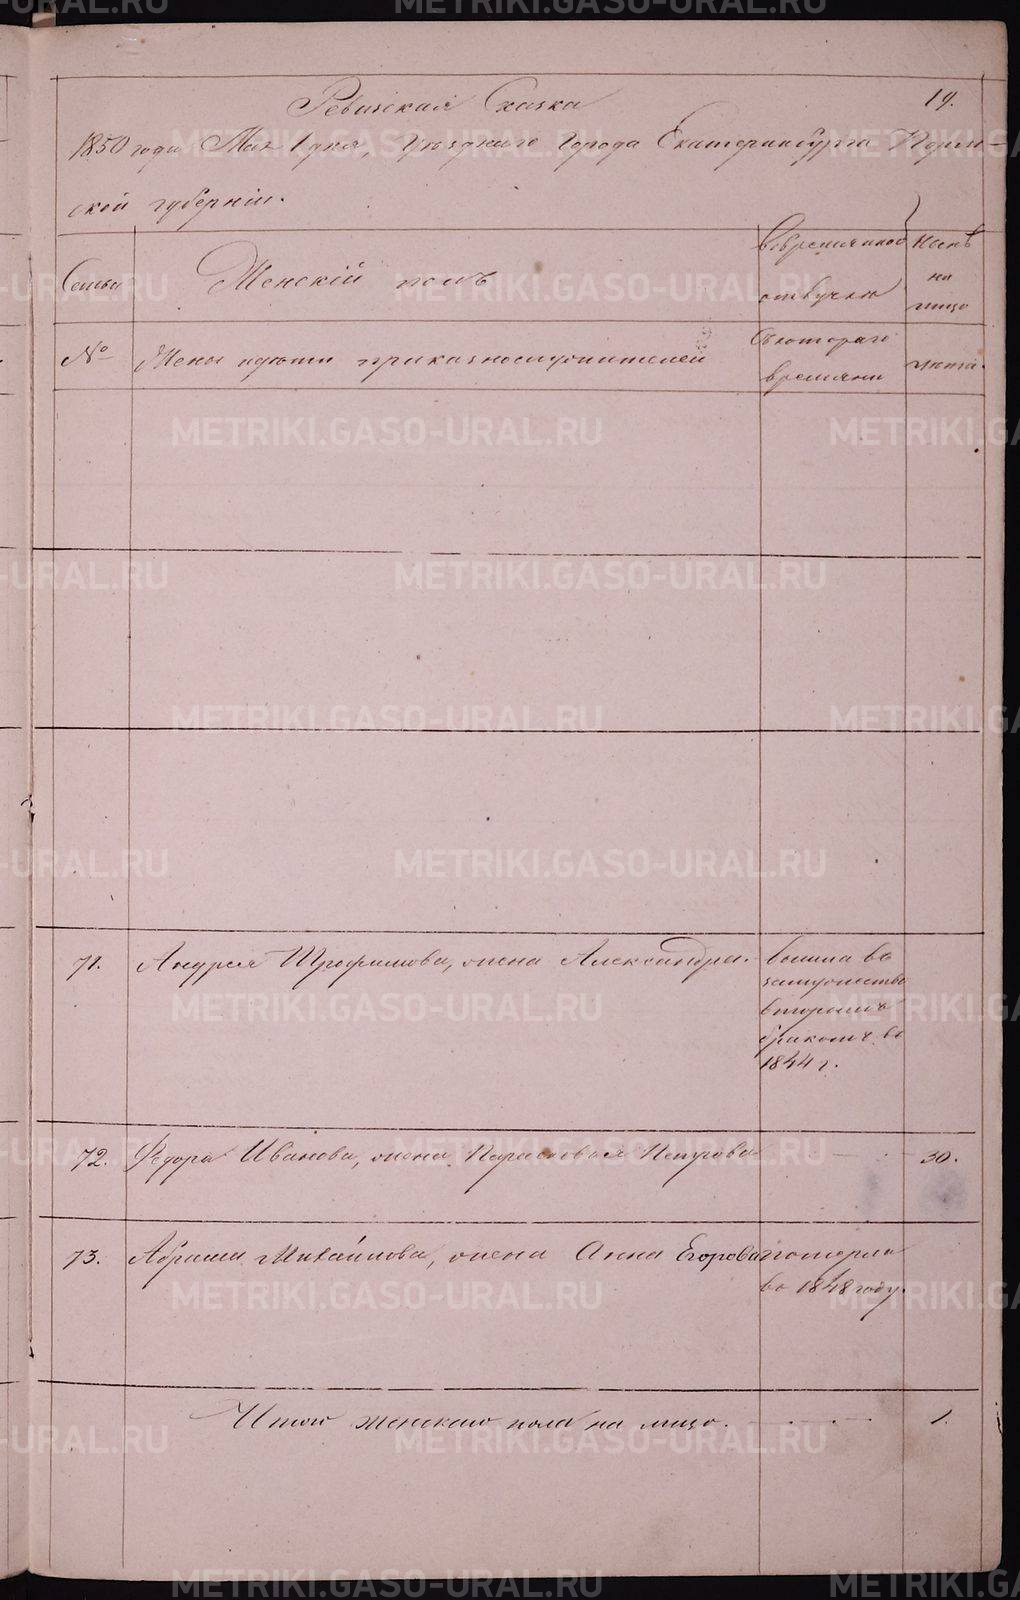 19.
Ревизская Сказка
1850 года Мая 1 дня. Уезднаго Города Екатеринбурга Перм-
ской губернiи.
Семьи
Женскiй полъ
во временной
отлучке
ныне
на
лицо
№
Жены приказнослужителей
Съ котораго
времяни
лета.
71.
Андрея Трофимова, жена Александра.
вышла во
замужество
вторымъ
бракомъ во
1844 г.
72.
Федора Иванова, жена Парасковья Петрова
30.
73.
Абрама Михайлова, жена Анна Егорова
померла
во 1848 году.
Итого женскаго пола на лицо.
1.
METRIKI.GASO-URAL.RU